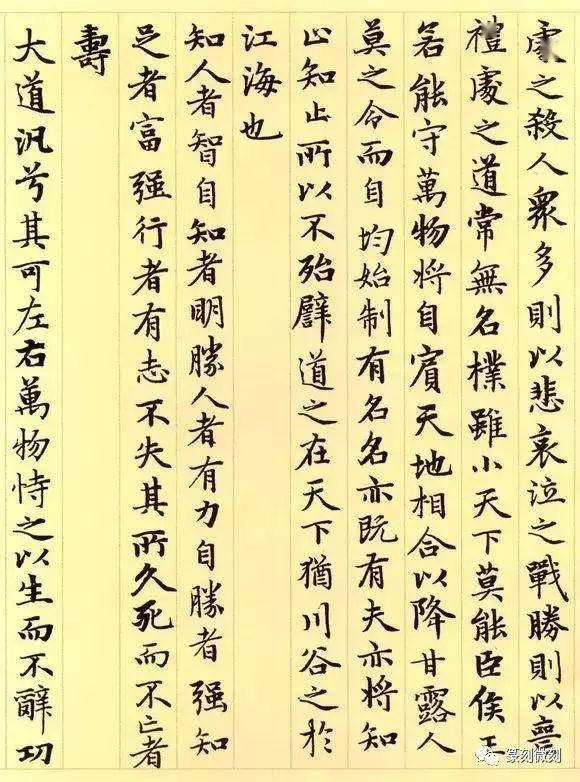 處之殺人衆多則以悲哀泣之戰勝則以喪
禮處之道常無名樸雖小天下莫能臣侯王
若能守萬物將自賓天地相合以降甘露人
莫之令而自均始制有名名亦既有夫亦將知
止知止所以不殆譬道之在天下猶川谷之於
江海也
知人者智自知者明勝人者有力自勝者强知
足者富强行者有志不失其所久死而不亡者
壽
大道汎兮其可左右萬物恃之以生而不辭功
篆刻微刻